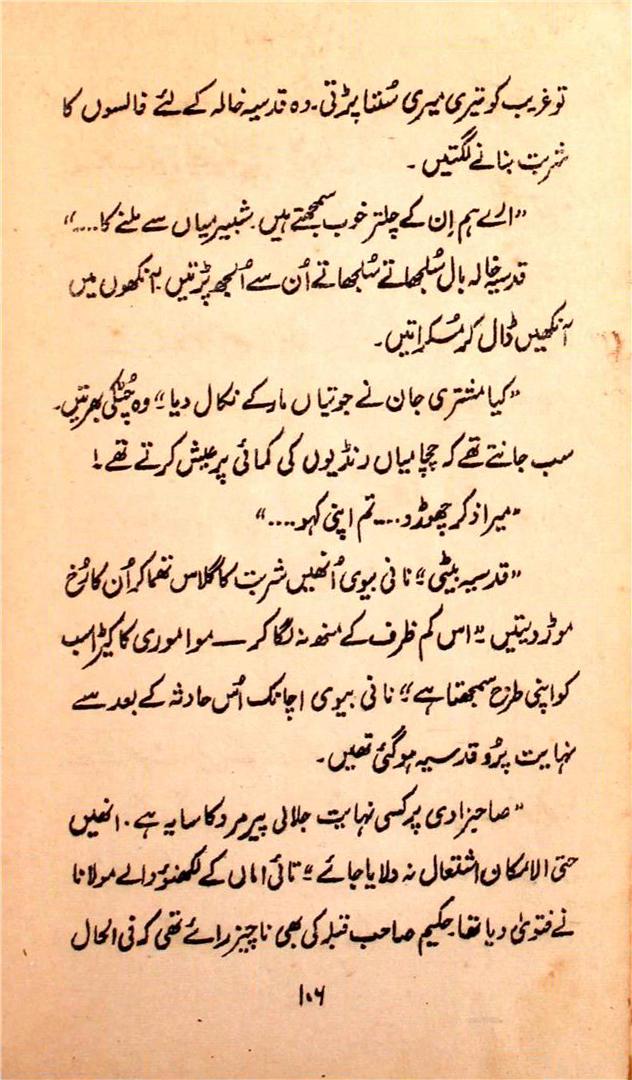 تو غریب کو تیری میری سُننا پڑتی۔ وہ قدسیہ خالہ کے لئے فالسوں کا
شربت بنانے لگتیں۔
”ارے ہم اِن کے چلتر خوب سمجھتے ہیں۔ شبیر میاں سے ملنے کا....“
قدسیہ خالہ بال سُلجھاتے سُلجھاتے اُن سے اُلجھ پڑتیں۔ آنکھوں میں
آنکھیں ڈال کر مسکراتیں۔
”کیا مشتری جان نے جوتیاں مار کے نکال دیا“ وہ چٹکی بھرتیں۔
سب جانتے تھے کہ چچا میاں رنڈیوں کی کمائی پر عیش کرتے تھے!
”میرا ذکر چھوڑو.... تم اپنی کہو....“
”قدسیہ بیٹی“ نانی بیوی اُنھیں شربت کا گلاس تھما کر اُن کا رُخ
موڑ دیتیں ”اس کم ظرف کے منھ نہ لگا کر — موا موری کا کیڑا سب
کو اپنی طرح سمجھتا ہے“ نانی بیوی اچانک اُس حادثہ کے بعد سے
نہایت پرُو قدسیہ ہو گئی تھیں۔
”صاحبزادی پر کسی نہایت جلالی پیر مرد کا سایہ ہے۔ انھیں
حتی الامکان اشتعال نہ دلایا جائے“ تائی اماں کے لکھنؤ والے مولانا
نے فتویٰ دیا تھا۔ حکیم صاحب قبلہ کی بھی ناچیز رائے تھی کہ فی الحال
۱۰۶